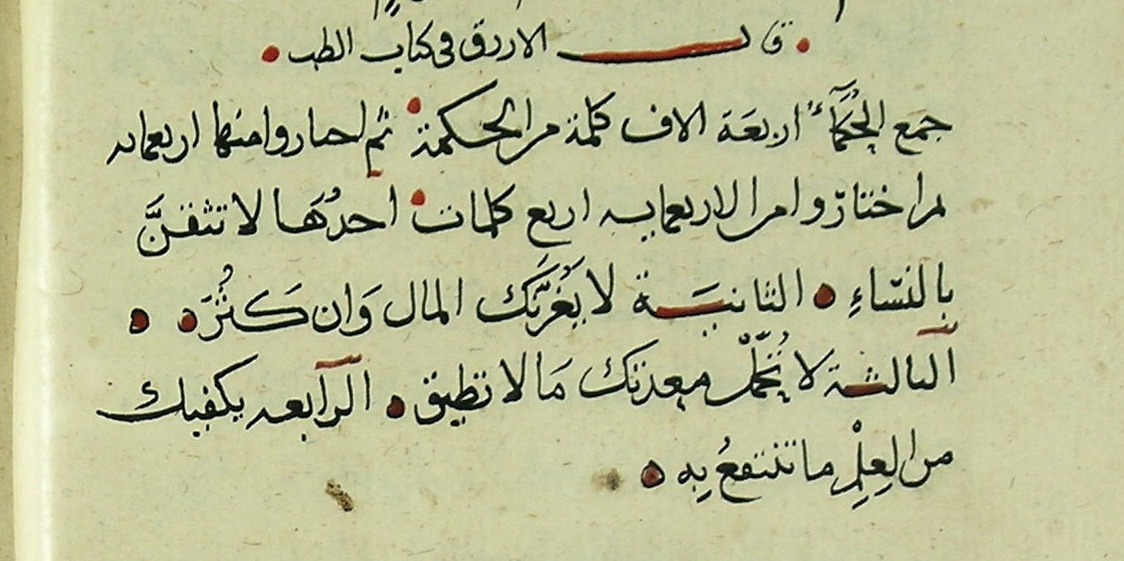 قال الازرق في كتاب الطب
جمع الحُكَمَآءُ اربعَة الاف كلمة من الحكمة ثم اختاروا منها اربعمايه
ثم اختارّوا من الاربعمايه اربع كلمات احدُهَا لا تثقنَّ
بالنسّاءِ الثانيَة لا يَغُرَّنَك المال وَان كَثُرَ
الثالثة لا تُحَمِّلْ معدتك مَا لا تطيق الرابعه يكفيك
من العِلِمْ ما تنتفعُ بِه